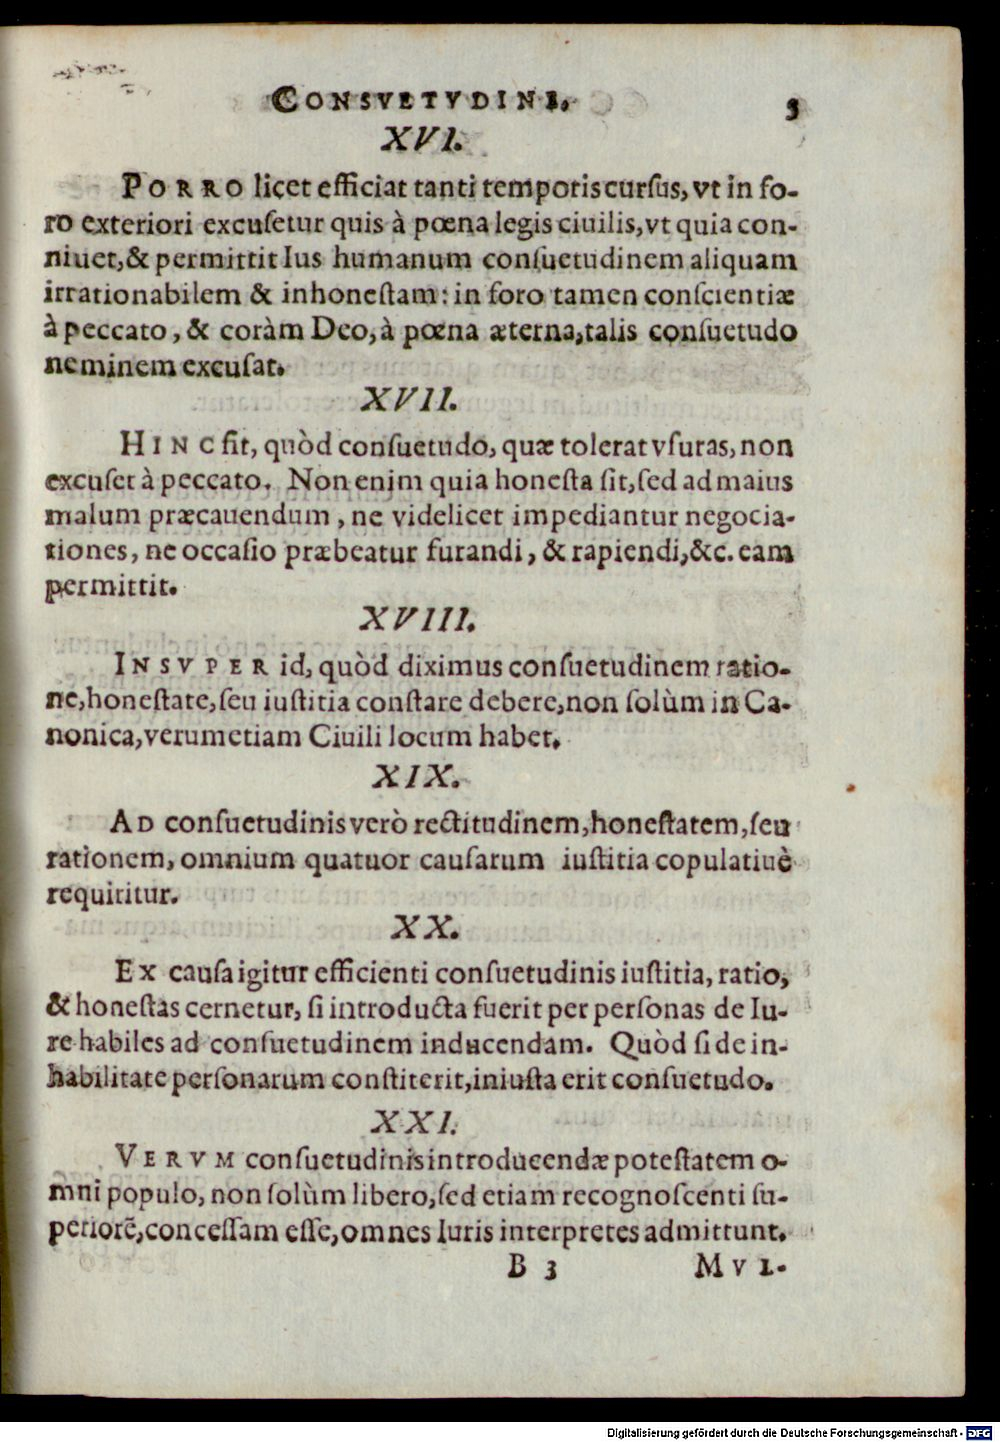 CONSVETVDINE.
5
XVI.
PORRO licet efficiat tanti temporis cursus, vt in fo-
ro exteriori excusetur quis à pœna legis ciuilis, vt quia con-
niuet, & permittit Ius humanum consuetudinem aliquam
irrationabilem & inhonestam: in foro tamen conscientiæ
à peccato, & coràm Deo, à pœna æterna, talis consuetudo
neminem excusat.
XVII.
HINC fit, quòd consuetudo, quæ tolerat vsuras, non
excuset à peccato. Non enim quia honesta sit, sed ad maius
malum præcauendum, ne videlicet impediantur negocia-
tiones, ne occasio præbeatur furandi, & rapiendi, &c. eam
permittit.
XVIII.
INSVPER id, quòd diximus consuetudinem ratio-
ne, honestate, seu iustitia constare debere, non solùm in Ca-
nonica, verumetiam Ciuili locum habet.
XIX.
AD consuetudinis verò rectitudinem, honestatem, seu
rationem, omnium quatuor causarum iustitia copulatiuè
requiritur.
XX.
EX causa igitur efficienti consuetudinis iustitia, ratio,
& honestas cernetur, si introducta fuerit per personas de Iu-
re habiles ad consuetudinem inducendam. Quòd si de in-
habilitate personarum constiterit, iniusta erit consuetudo.
XXI.
VERVM consuetudinis introducendæ potestatem o-
mni populo, non solùm libero, sed etiam recognoscenti su-
periorẽ, concessam esse, omnes Iuris interpretes admittunt.
B 3
MVL-
Digitalisierung gefördert durch die Deutsche Forschungsgemeinschaft - DFG